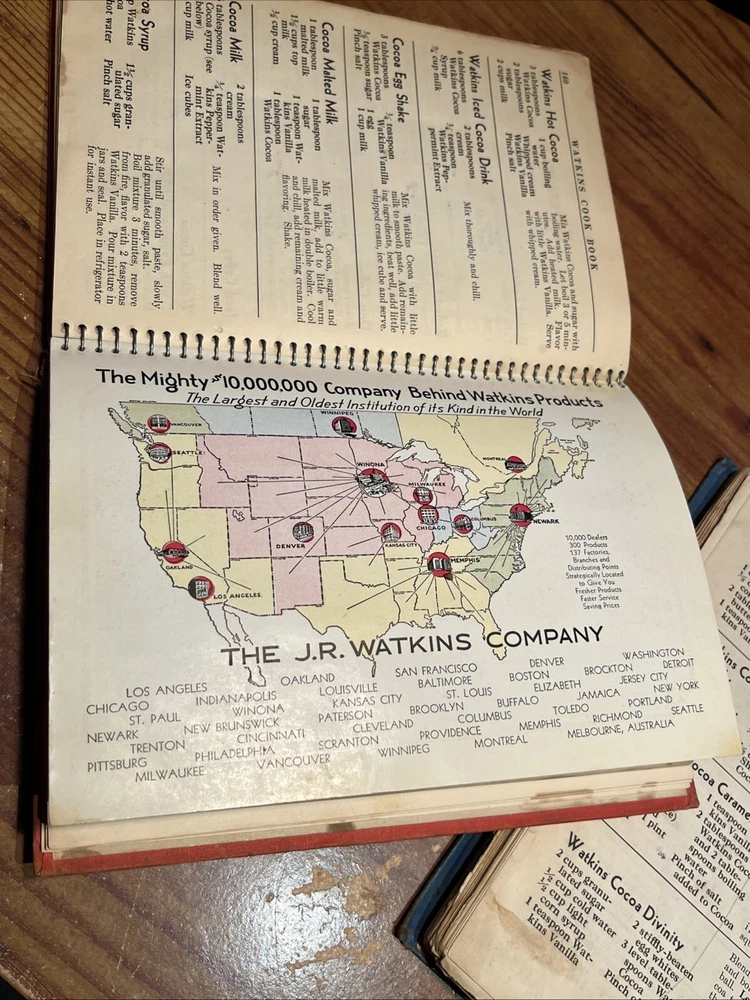 160
WATKINS COOK BOOK
Watkins Hot Cocoa
3 tablespoons
Watkins Cocoa
2 tablespoons
sugar
2 cups milk
1 cup boiling
water
Whipped cream
Watkins Vanilla
Pinch salt
Mix Watkins Cocoa and sugar with
boiling water. Let boil 3 or 5 min-
utes. Add heated milk. Flavor
with little Watkins Vanilla. Serve
with whipped cream.
Watkins Iced Cocoa Drink
6 tablespoons
Watkins Cocoa
Syrup
¾ cup milk
2 tablespoons
cream
teaspoon
Watkins Pep-
permint Extract
Mix thoroughly and chill.
Cocoa Egg Shake
3 tablespoons
Watkins Cocoa
teaspoon sugar
Pinch salt
teaspoon
Watkins Vanilla
1 egg
1 cup milk
Mix Watkins Cocoa with little
milk to smooth paste. Add remain-
ing ingredients, beat well, add little
whipped cream, ice cube and serve.
Cocoa Malted Milk
1 tablespoon
malted milk
1½ cups top
milk
cup cream
1 tablespoon
sugar
1 teaspoon Wat-
kins Vanilla
1 tablespoon
Watkins Cocoa
Mix Watkins Cocoa, sugar and
malted milk, add to little warm
milk heated in double boiler. Cool
and chill, add remaining cream and
flavoring. Shake.
Cocoa Milk
tablespoons
Cocoa syrup (see
below)
cup milk
2 tablespoons
cream
teaspoon Wat-
kins Pepper-
mint Extract
Ice cubes
Mix in order given. Blend well.
Syrup
Watkins
hot water
1½ cups gran-
ulated sugar
Pinch salt
Stir until smooth paste, slowly
add granulated sugar, salt.
Boil mixture 3 minutes, remove
from fire, flavor with 2 teaspoons
Watkins Vanilla. Pour mixture in
jars and seal. Place in refrigerator
for instant use.
The Mighty $10,000,000 Company Behind Watkins Products
The Largest and Oldest Institution of its Kind in the World
VANCOUVER
WINNIPEG
SEATTLE
MONTREAL
WINONA
MILWAUKEE
CHICAGO
COLUMBUS
NEWARK
DENVER
KANSAS CITY
OAKLAND
MEMPHIS
LOS ANGELES
10,000 Dealers
300 Products
137 Factories,
Branches and
Distributing Points
Strategically Located
to Give You
Fresher Products
Faster Service
Saving Prices
THE J.R. WATKINS COMPANY
LOS ANGELES OAKLAND SAN FRANCISCO DENVER WASHINGTON
CHICAGO INDIANAPOLIS LOUISVILLE BALTIMORE BOSTON BROCKTON DETROIT
ST. PAUL WINONA KANSAS CITY ST. LOUIS ELIZABETH JERSEY CITY
NEWARK NEW BRUNSWICK PATERSON BROOKLYN BUFFALO JAMAICA NEW YORK
TRENTON CINCINNATI CLEVELAND COLUMBUS TOLEDO PORTLAND
PITTSBURG PHILADELPHIA SCRANTON PROVIDENCE MEMPHIS RICHMOND SEATTLE
MILWAUKEE VANCOUVER WINNIPEG MONTREAL MELBOURNE, AUSTRALIA
Watkins Cocoa Divinity
2 cups granu-
lated sugar
½ cup cold water
½ cup light
corn syrup
1 teaspoon Wat-
kins Vanilla
2 stiffly-beaten
egg whites
3 level table-
spoons
Cocoa
Pinch of
1 pint
1 teaspoon
kins Vanilla
2 tablespoons
Watkins Cocoa
and 2 table-
spoons boiling
water
Pinch of salt
added to Cocoa